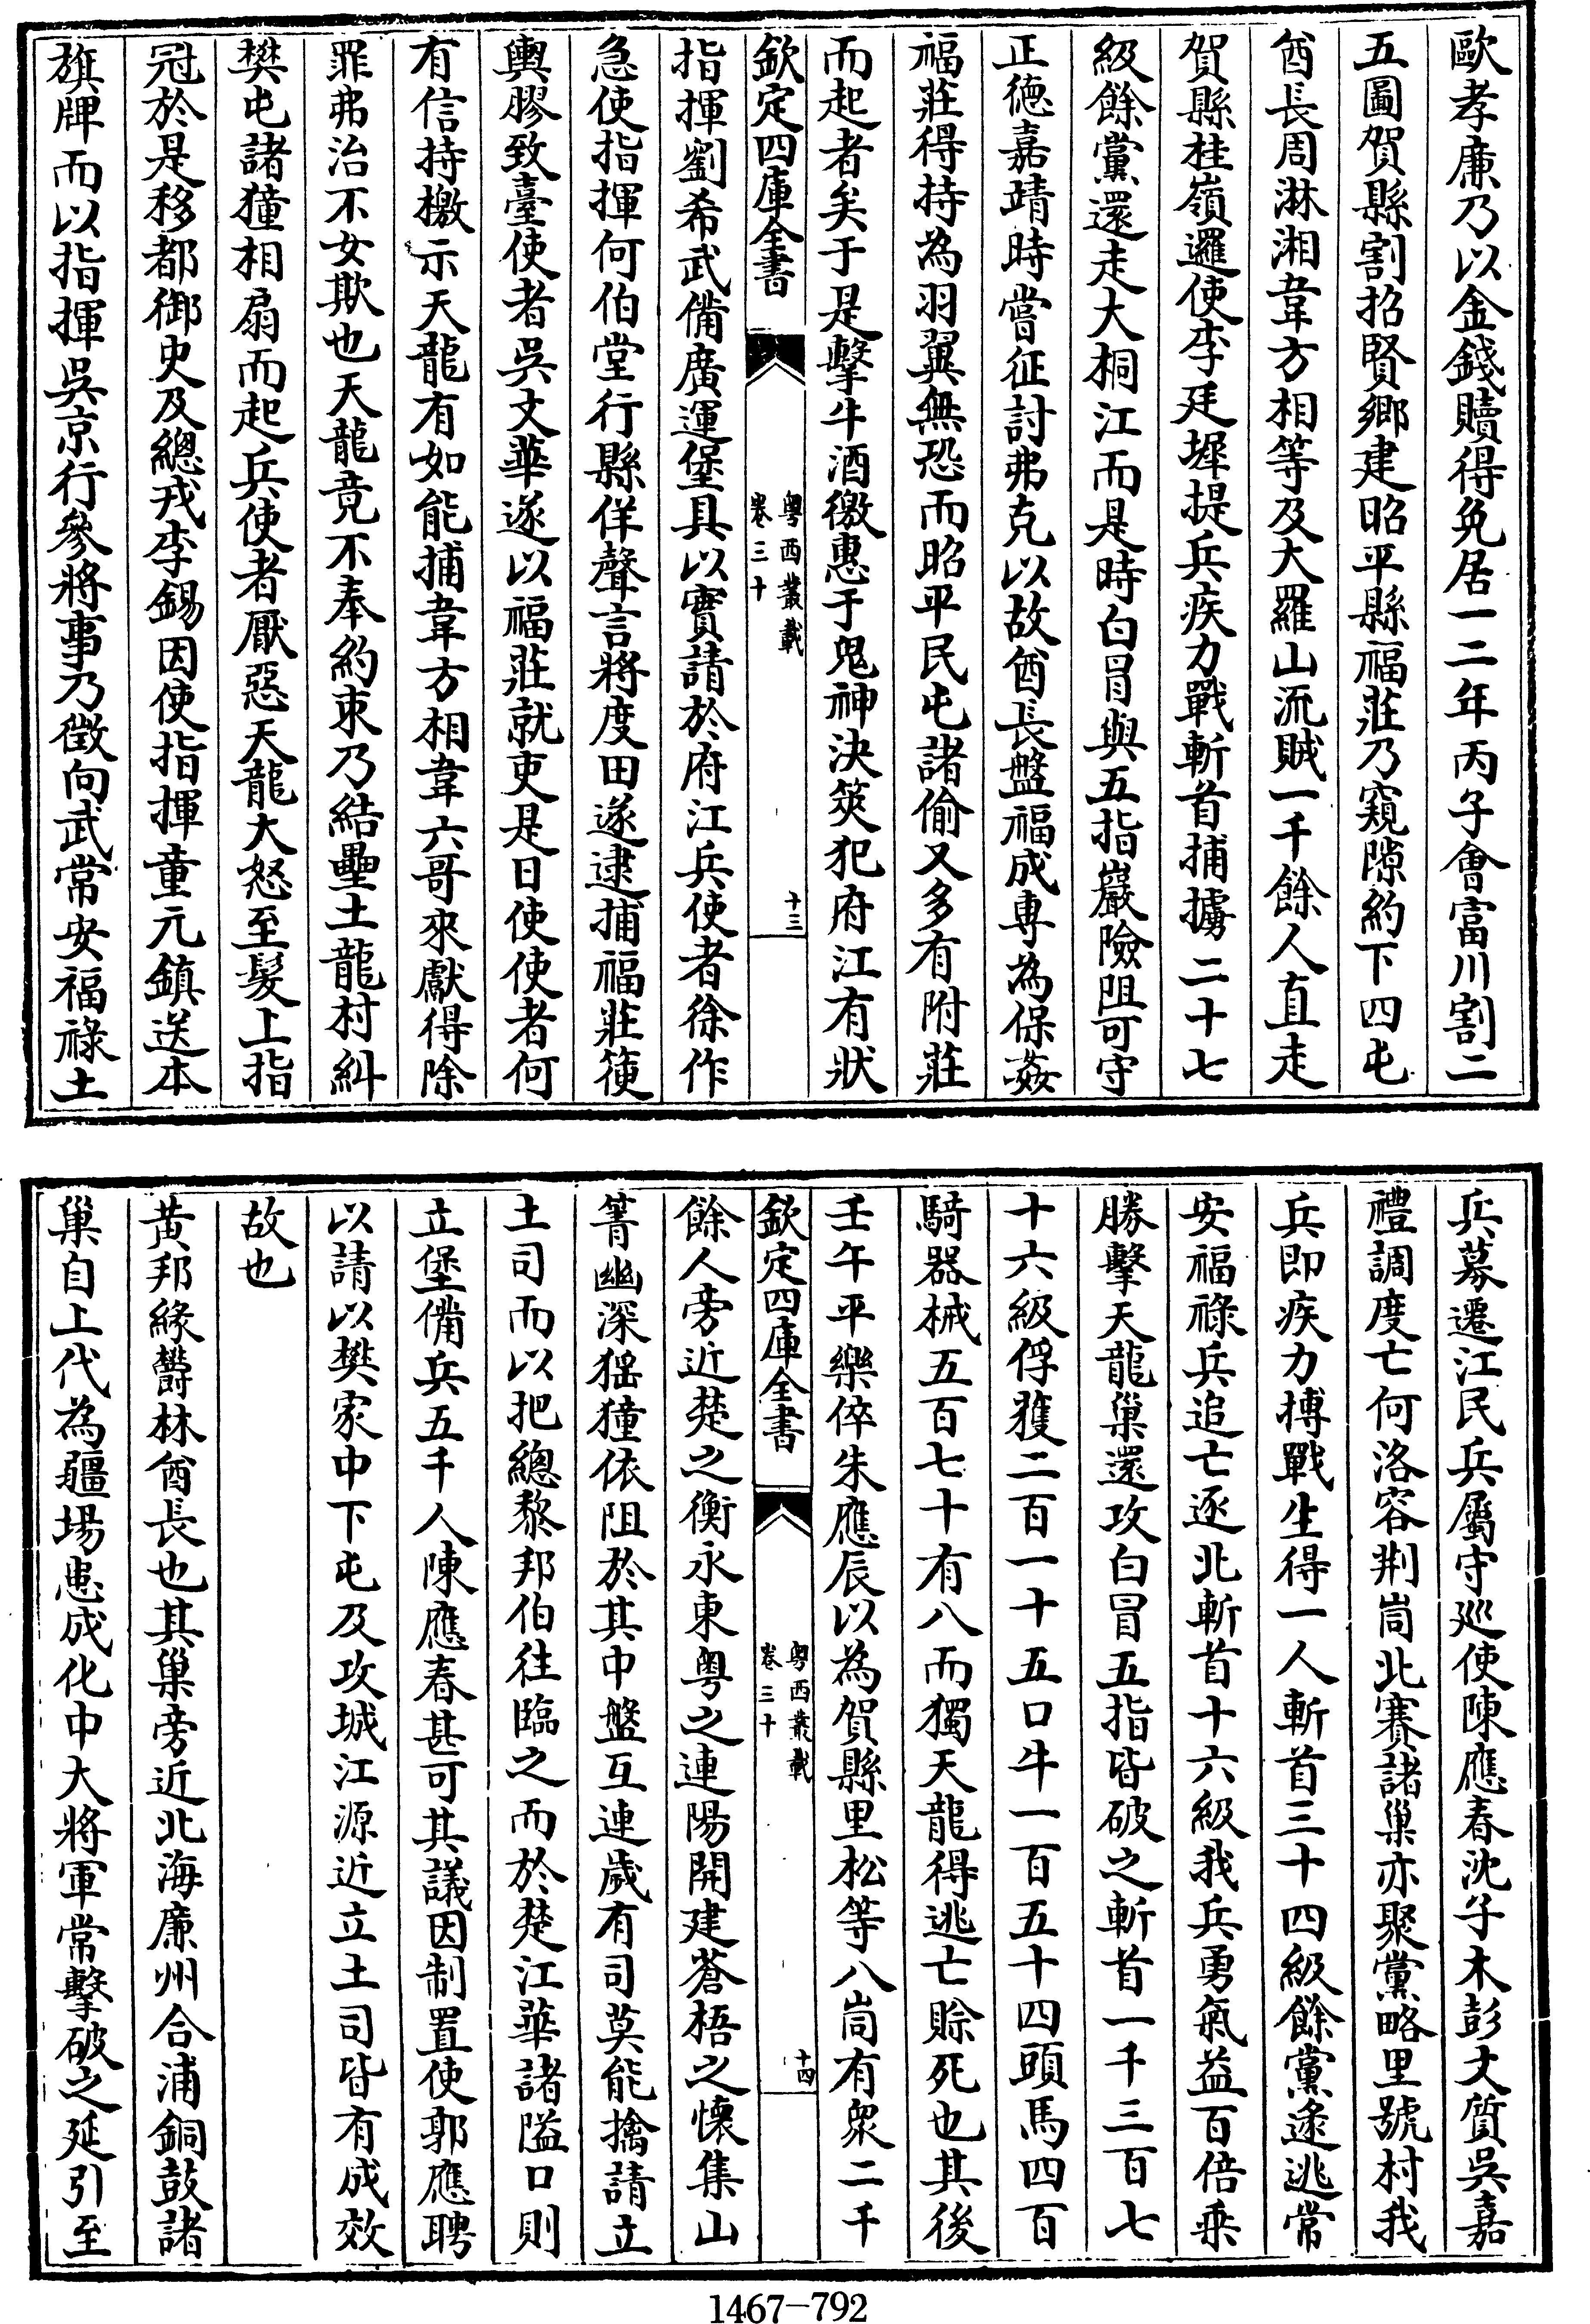 歐孝廉乃以金錢贖得免居一二年丙子會富川割二
五圖賀縣割招賢鄉建昭平縣福莊乃窺隙約下四屯
酋長周淋湘韋方相等及大羅山流賊一千餘人直走
賀縣桂嶺邏使李廷墀提兵疾力戰斬首捕擄二十七
級餘黨還走大桐江而是時白冒與五指巖險阻可守
正德嘉靖時嘗征討弗克以故酋長盤福成專為保姦
福莊得持為羽翼無恐而昭平民屯諸偷又多有附莊
而起者矣于是擊牛酒徼惠于鬼神決筴犯府江有狀
欽定四庫全書
粵西叢載
卷三十
十三
指揮劉希武備廣運堡具以實請於府江兵使者徐作
急使指揮何伯堂行縣佯聲言將度田遂逮捕福莊箯
輿膠致臺使者吳文華遂以福莊就吏是日使使者何
有信持檄示天龍有如能捕韋方相韋六哥來獻得除
罪弗治不女欺也天龍竟不奉約束乃結壘土龍村糾
樊屯諸獞相扇而起兵使者厭惡天龍大怒至髮上指
冠於是移都御史及總戎李錫因使指揮童元鎮送本
旗牌而以指揮吳京行參將事乃徵向武常安福祿土
兵募遷江民兵屬守巡使陳應春沈子木彭文質吳嘉
禮調度亡何洛容荆峝北賽諸巢亦聚黨略里號村我
兵即疾力搏戰生得一人斬首三十四級餘黨逺逃常
安福祿兵追亡逐北斬首十六級我兵勇氣益百倍乘
勝擊天龍巢還攻白冒五指皆破之斬首一千三百七
十六級俘獲二百一十五口牛一百五十四頭馬四百
騎器械五百七十有八而獨天龍得逃亡賒死也其後
壬午平樂倅朱應辰以為賀縣里松等八峝有衆二千
欽定四庫全書
粵西叢載
卷三十
十四
餘人旁近楚之衡永東粵之連陽開建蒼梧之懷集山
箐幽深猺獞依阻於其中盤互連歲有司莫能擒請立
土司而以把總黎邦伯往臨之而於楚江華諸隘口則
立堡備兵五千人陳應春甚可其議因制置使郭應聘
以請以樊家中下屯及攻城江源近立土司皆有成效
故也
黃邦緣欝林酋長也其巢旁近北海廉州合浦銅鼓諸
巢自上代為疆場患成化中大將軍常擊破之延引至
1467-792